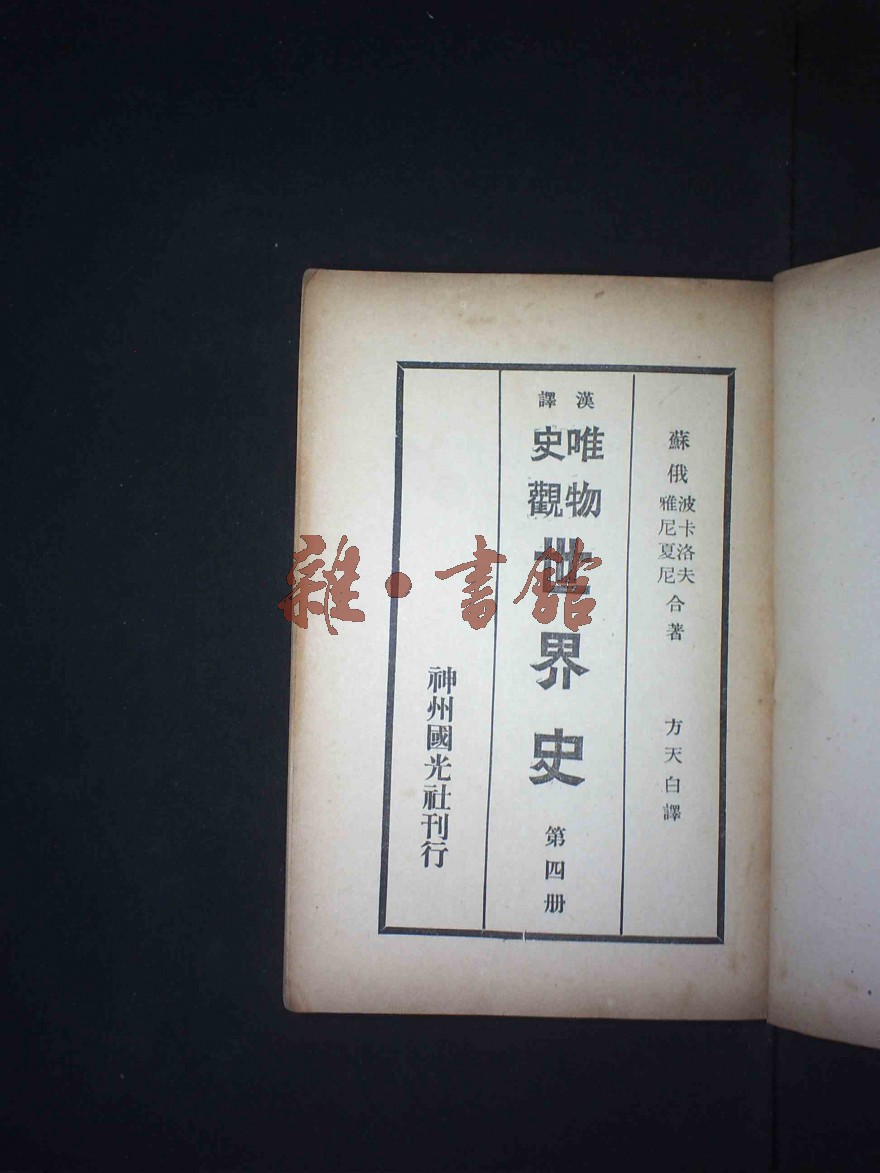 蘇俄波卡洛夫
雅尼夏尼合著
方天白譯
漢譯
唯物
史觀
世界史
第四册
神州國光社刊行
雜·書館